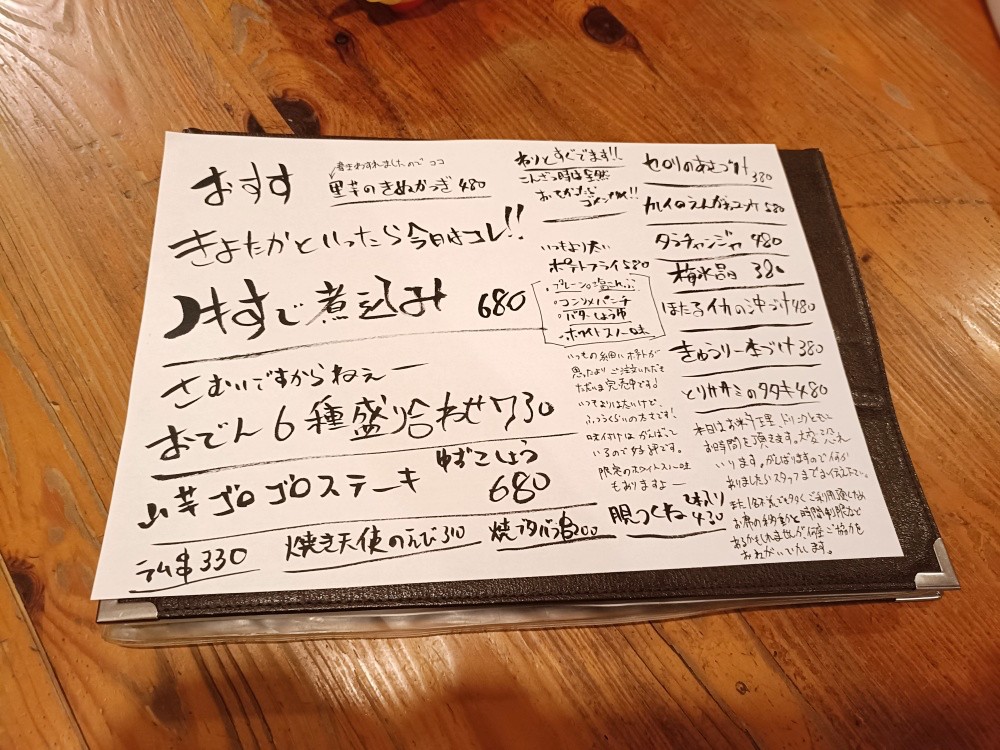 おすす
書きわすれましたので ココ
里芋のきぬかつぎ 480
きよたかといったら今日はコレ!!
すじ煮込み 680
さむいですからねぇー
おでん6種盛り合わせ 730
ゆずこしょう
山芋ゴロゴロステーキ 680
ラム串 330
焼き天使のえび 310
焼ブタバラ串 200
わりとすぐでます!!
こんざつ時は全然
ゴメンナサイ!!
いつもより太い
ポテトフライ 580
・プレーン・塩こんぶ
・コンソメパンチ
・バターしょうゆ
・ホワイトスノー味
いつもの細いポテトが
思ったよりご注文いただき
ただいま完売中です。
いつもよりは太いけど、
ふつうくらいの太さです!
味付けはがんばって
いるので好評です。
限定のホワイトスノー味
もありますよー
2本入り
つくね 430
セロリのあさづけ 380
カレイのえんがわユッケ 580
タラチャンジャ 480
梅水晶 380
ほたるイカの沖づけ 480
きゅうり一本づけ 380
とりササミのタタキ 480
本日はお料理、ドリンクともに
お時間を頂きます。大変恐れ
いります。がんばりますので何か
ありましたらスタッフまでお伝え下さい。
お席の移動と時間制限など
あるかもしれませんが何卒ご協力を
おねがいいたします。